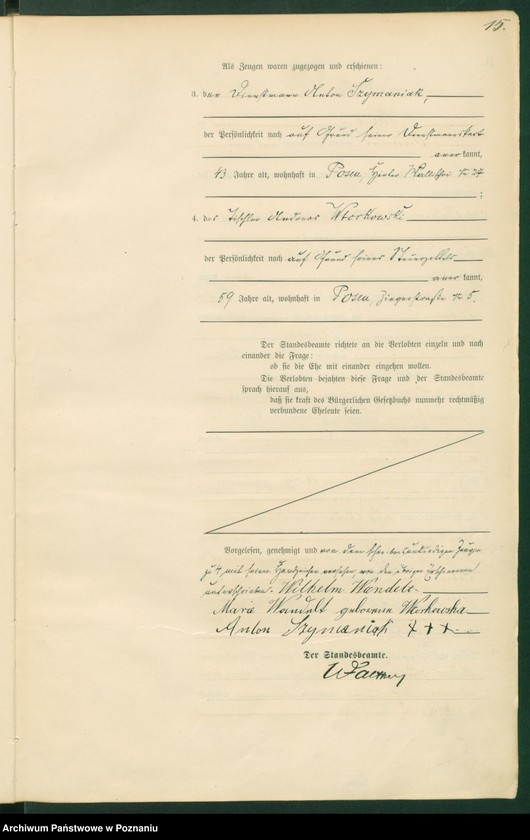 15.
Als Zeugen waren zugezogen und erschienen:
3. der Dienstmann Anton Szymaniak,
der Persönlichkeit nach auf Grund seiner Dienstmannskarte
anerkannt,
43 Jahre alt, wohnhaft in Posen, Hinter Wallischei № 24
;
4. der Tischler Andreas Wtorkowski
der Persönlichkeit nach auf Grund seines Steuerzettels
anerkannt,
59 Jahre alt, wohnhaft in Posen, Ziegenstraße № 5.
Der Standesbeamte richtete an die Verlobten einzeln und nach
einander die Frage:
ob sie die Ehe mit einander eingehen wollen.
Die Verlobten bejahten diese Frage und der Standesbeamte
sprach hierauf aus,
daß sie kraft des Bürgerlichen Gesetzbuchs nunmehr rechtmäßig
verbundene Eheleute seien.
Vorgelesen, genehmigt und von dem schreibensunkundigen Zeugen
zu 4, mit seinem Handzeichen versehen, von den übrigen Erschienenen
unterschrieben. Wilhelm
Marie Wandelt geborene
Anton Szymaniak + + +
Der Standesbeamte.
Archiwum Państwowe w Poznaniu